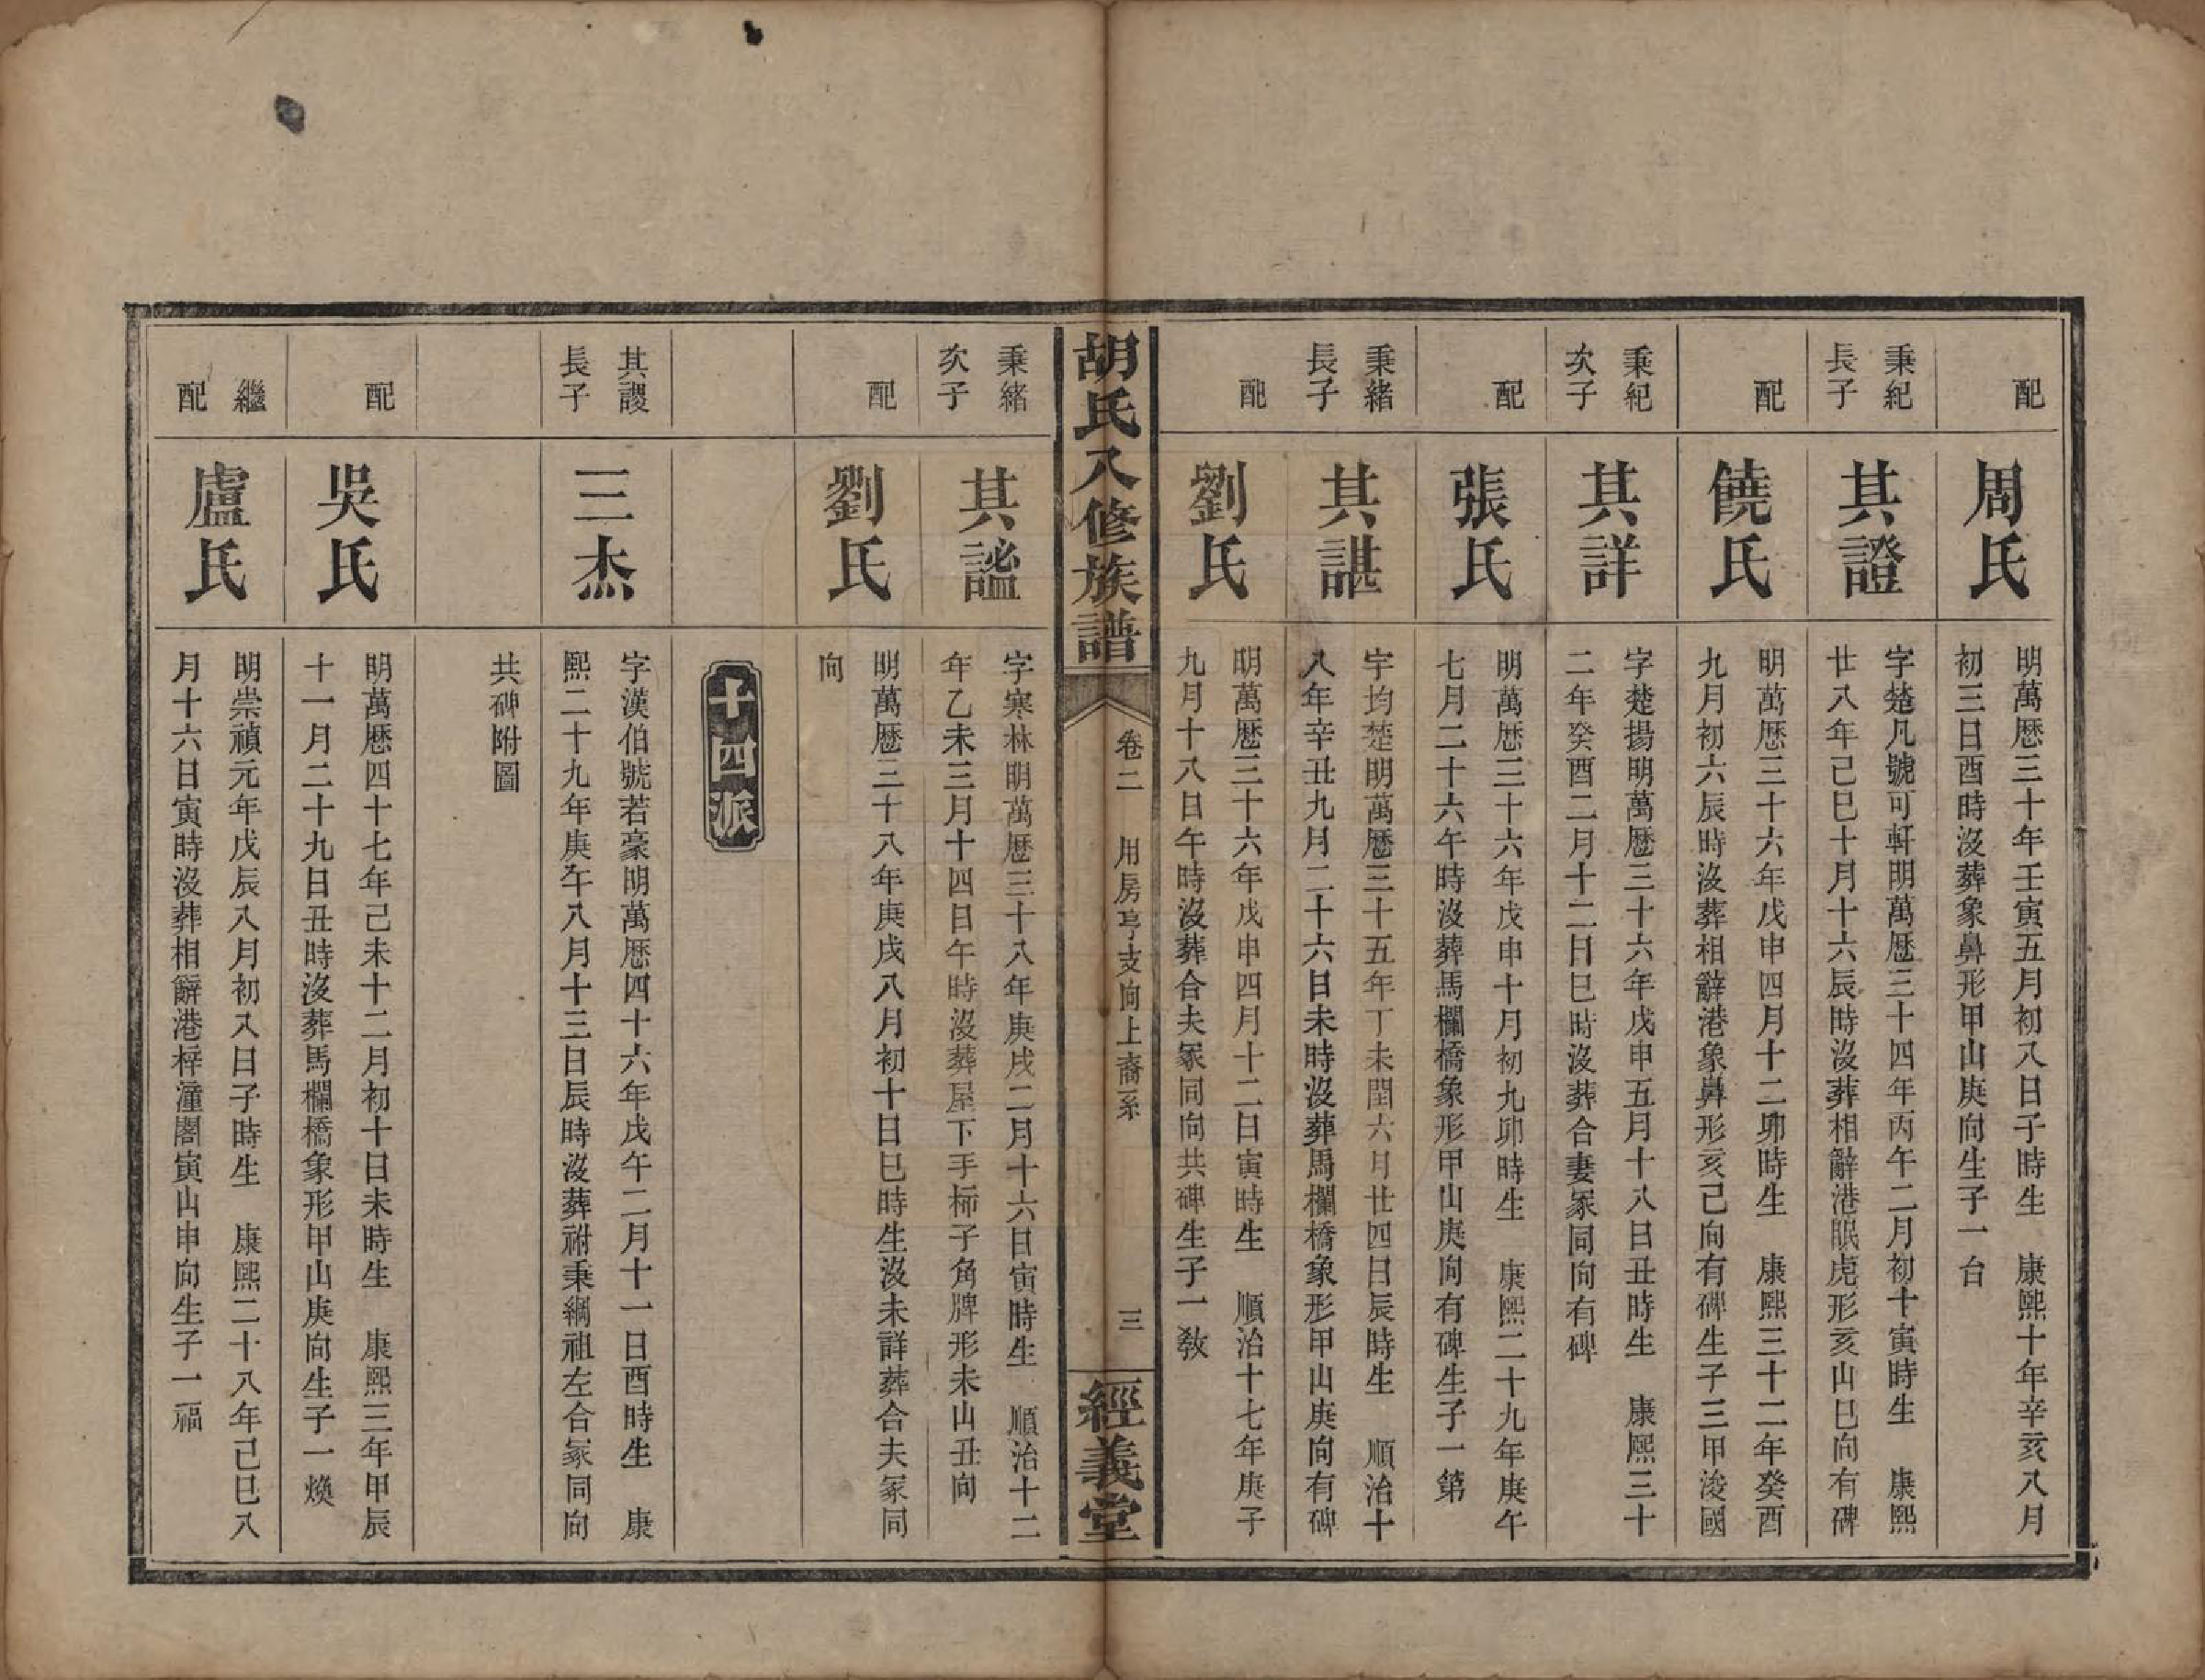 配
周氏
明萬歷三十年壬寅五月初八日子時生　康熙十年辛亥八月
初三日酉時沒葬象鼻形甲山庚向生子一台
秉紀
長子
其證
字楚凡號可軒明萬歷三十四年丙午二月初十寅時生　康熙
廿八年己巳十月十六辰時沒葬相辭港眠虎形亥山巳向有碑
配
饒氏
明萬歷三十六年戊申四月十二卯時生　康熙三十二年癸酉
九月初六辰時沒葬相辭港象鼻形亥巳向有碑生子三甲浚國
秉紀
次子
其詳
字楚揚明萬歷三十六年戊申五月十八日丑時生　康熙三十
二年癸酉二月十二日巳時沒葬合妻冢同向有碑
配
張氏
明萬歷三十六年戊申十月初九卯時生　康熙二十九年庚午
七月二十六午時沒葬馬欄橋象形甲山庚向有碑生子一第
秉緒
長子
其諶
字均楚明萬歷三十五年丁未閏六月廿四日辰時生　順治十
八年辛丑九月二十六日未時沒葬馬欄橋象形甲山庚向有碑
配
劉氏
明萬歷三十六年戊申四月十二日寅時生　順治十七年庚子
九月十八日午時沒葬合夫冢同向共碑生子一敎
胡氏八修族譜
卷二　用房亨支向上裔系
三
經義堂
秉緒
次子
其謐
字寒林明萬歷三十八年庚戌二月十六日寅時生　順治十二
年乙未三月十四日午時沒葬屋下手柿子角牌形未山丑向
配
劉氏
明萬歷三十八年庚戌八月初十日巳時生沒未詳葬合夫冢同
向
十四派
其謖
長子
三杰
字漢伯號若豪明萬歷四十六年戊午二月十一日酉時生　康
熙二十九年庚午八月十三日辰時沒葬祔秉綱祖左合冢同向
共碑附圖
配
吳氏
明萬歷四十七年己未十二月初十日未時生　康熙三年甲辰
十一月二十九日丑時沒葬馬欄橋象形甲山庚向生子一煥
繼
配
盧氏
明崇禎元年戊辰八月初八日子時生　康熙二十八年己巳八
月十六日寅時沒葬相辭港梓潼閣寅山申向生子一福